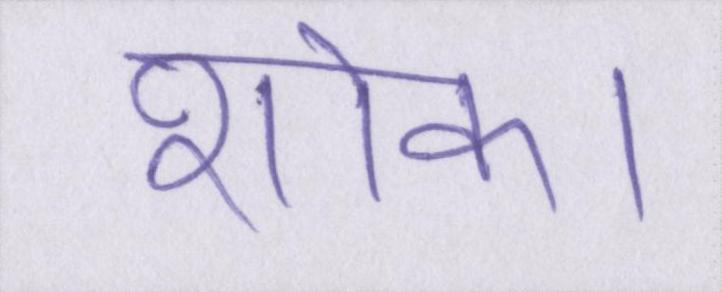 शोक।